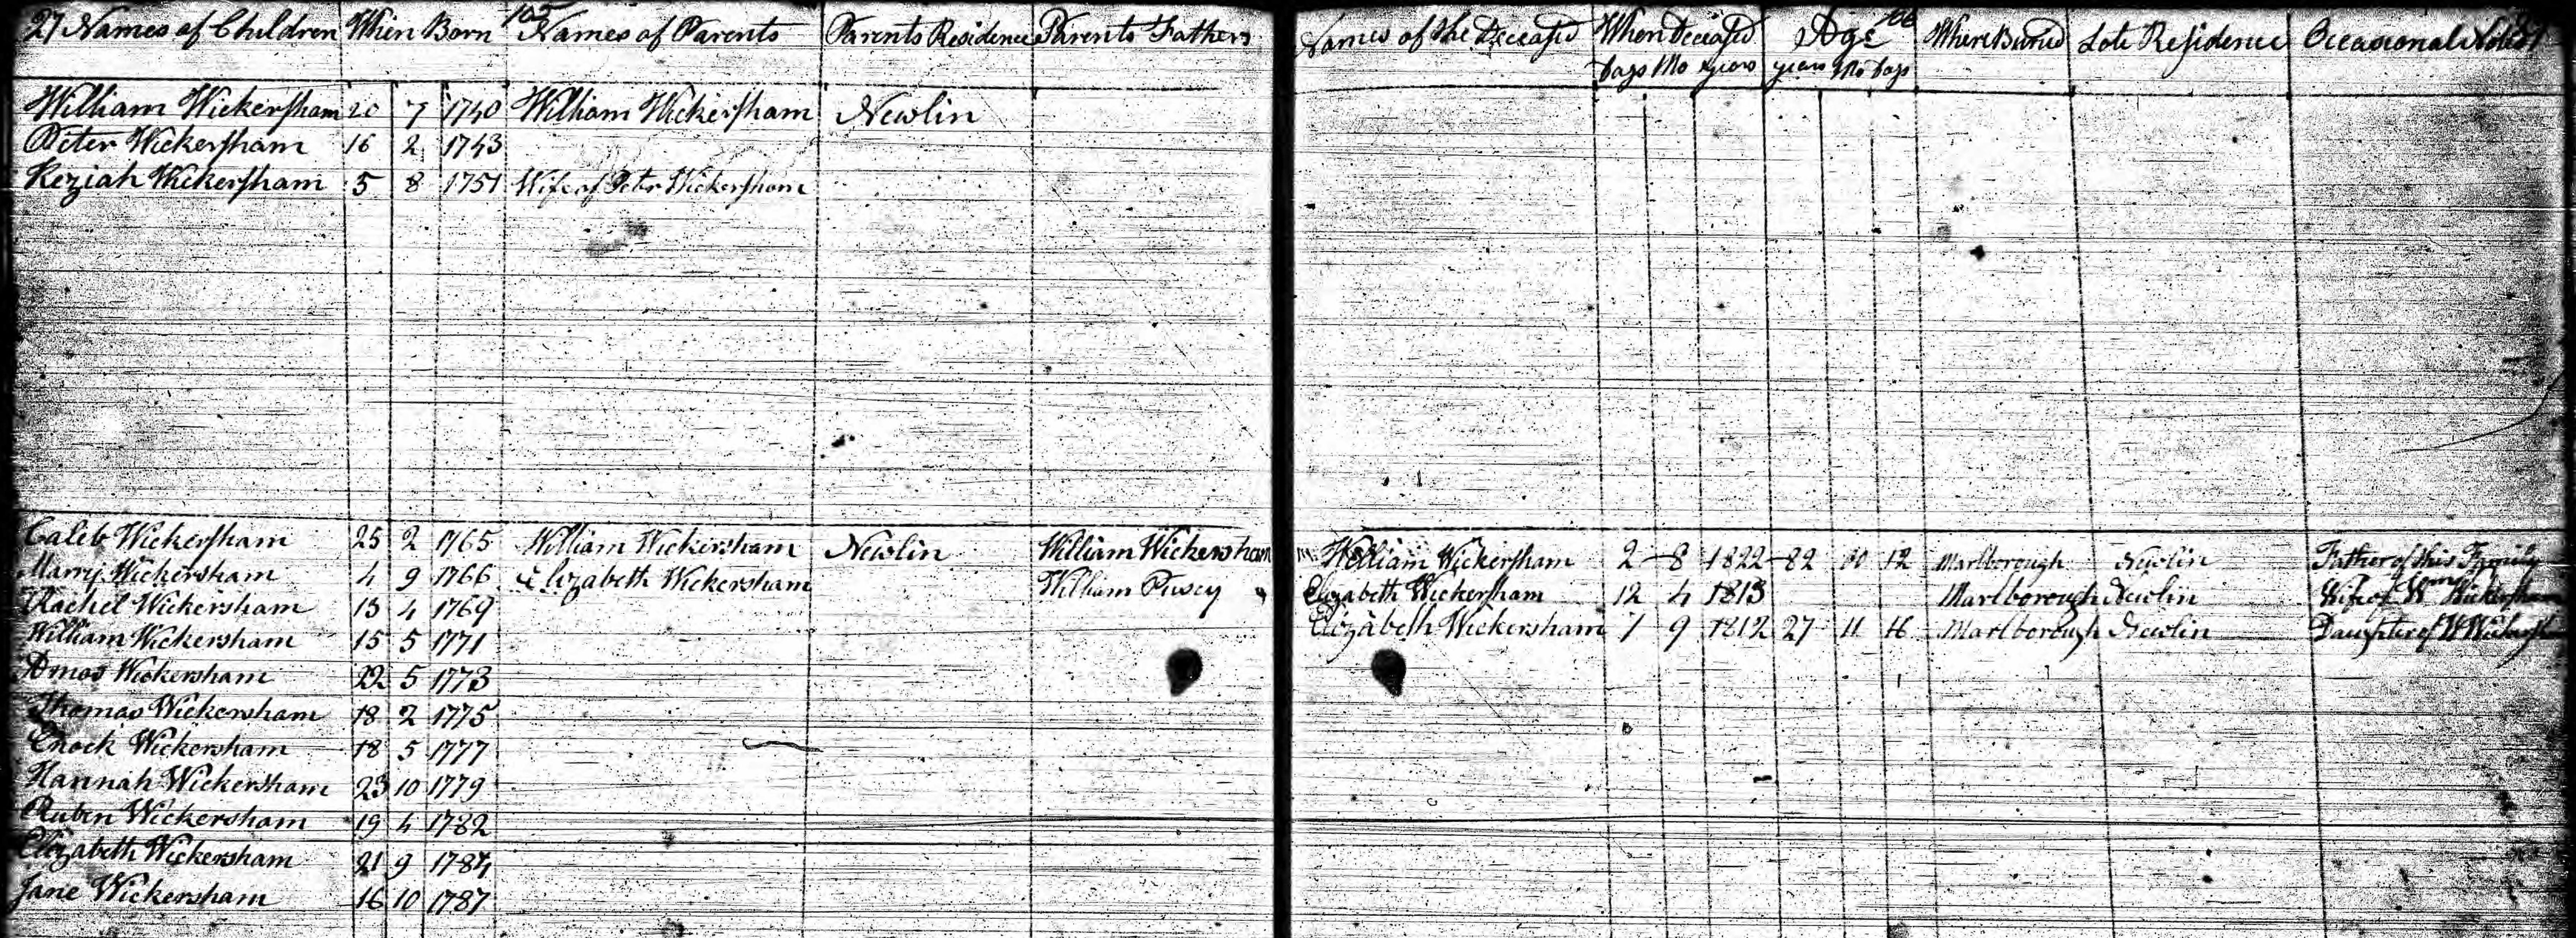 27 Names of Children When Born 105 Names of Parents Parents Residence Parents Fathers
William Wickersham 20 7 1740 William Wickersham Newlin
Peter Wickersham 16 2 1743
Keziah Wickersham 5 8 1751 Wife of Peter Wickersham
Caleb Wickersham 25 2 1765 William Wickersham Newlin William Wickersham
Marry Wickersham 4 9 1766 & Elizabeth Wickersham William Pusey
Rachel Wickersham 13 4 1769
William Wickersham 15 5 1771
Amos Wickersham 22 5 1773
Thomas Wickersham 18 2 1775
Enock Wickersham 18 5 1777
Hannah Wickersham 23 10 1779
Ruben Wickersham 19 4 1782
Elizabeth Wickersham 21 9 1784
Jane Wickersham 16 10 1787
Names of the Deceased When Deceased Age Where Buried Late Residence Occasional
Days Mo years years Mo Days
William Wickersham 2 8 1822 82 12 Marlborough Newlin Father of this Family
Elizabeth Wickersham 12 4 1813 Marlborough Newlin Wife of Wm Wickersham
Elizabeth Wickersham 7 9 1812 27 11 16 Marlborough Newlin Daughter of W Wickersh